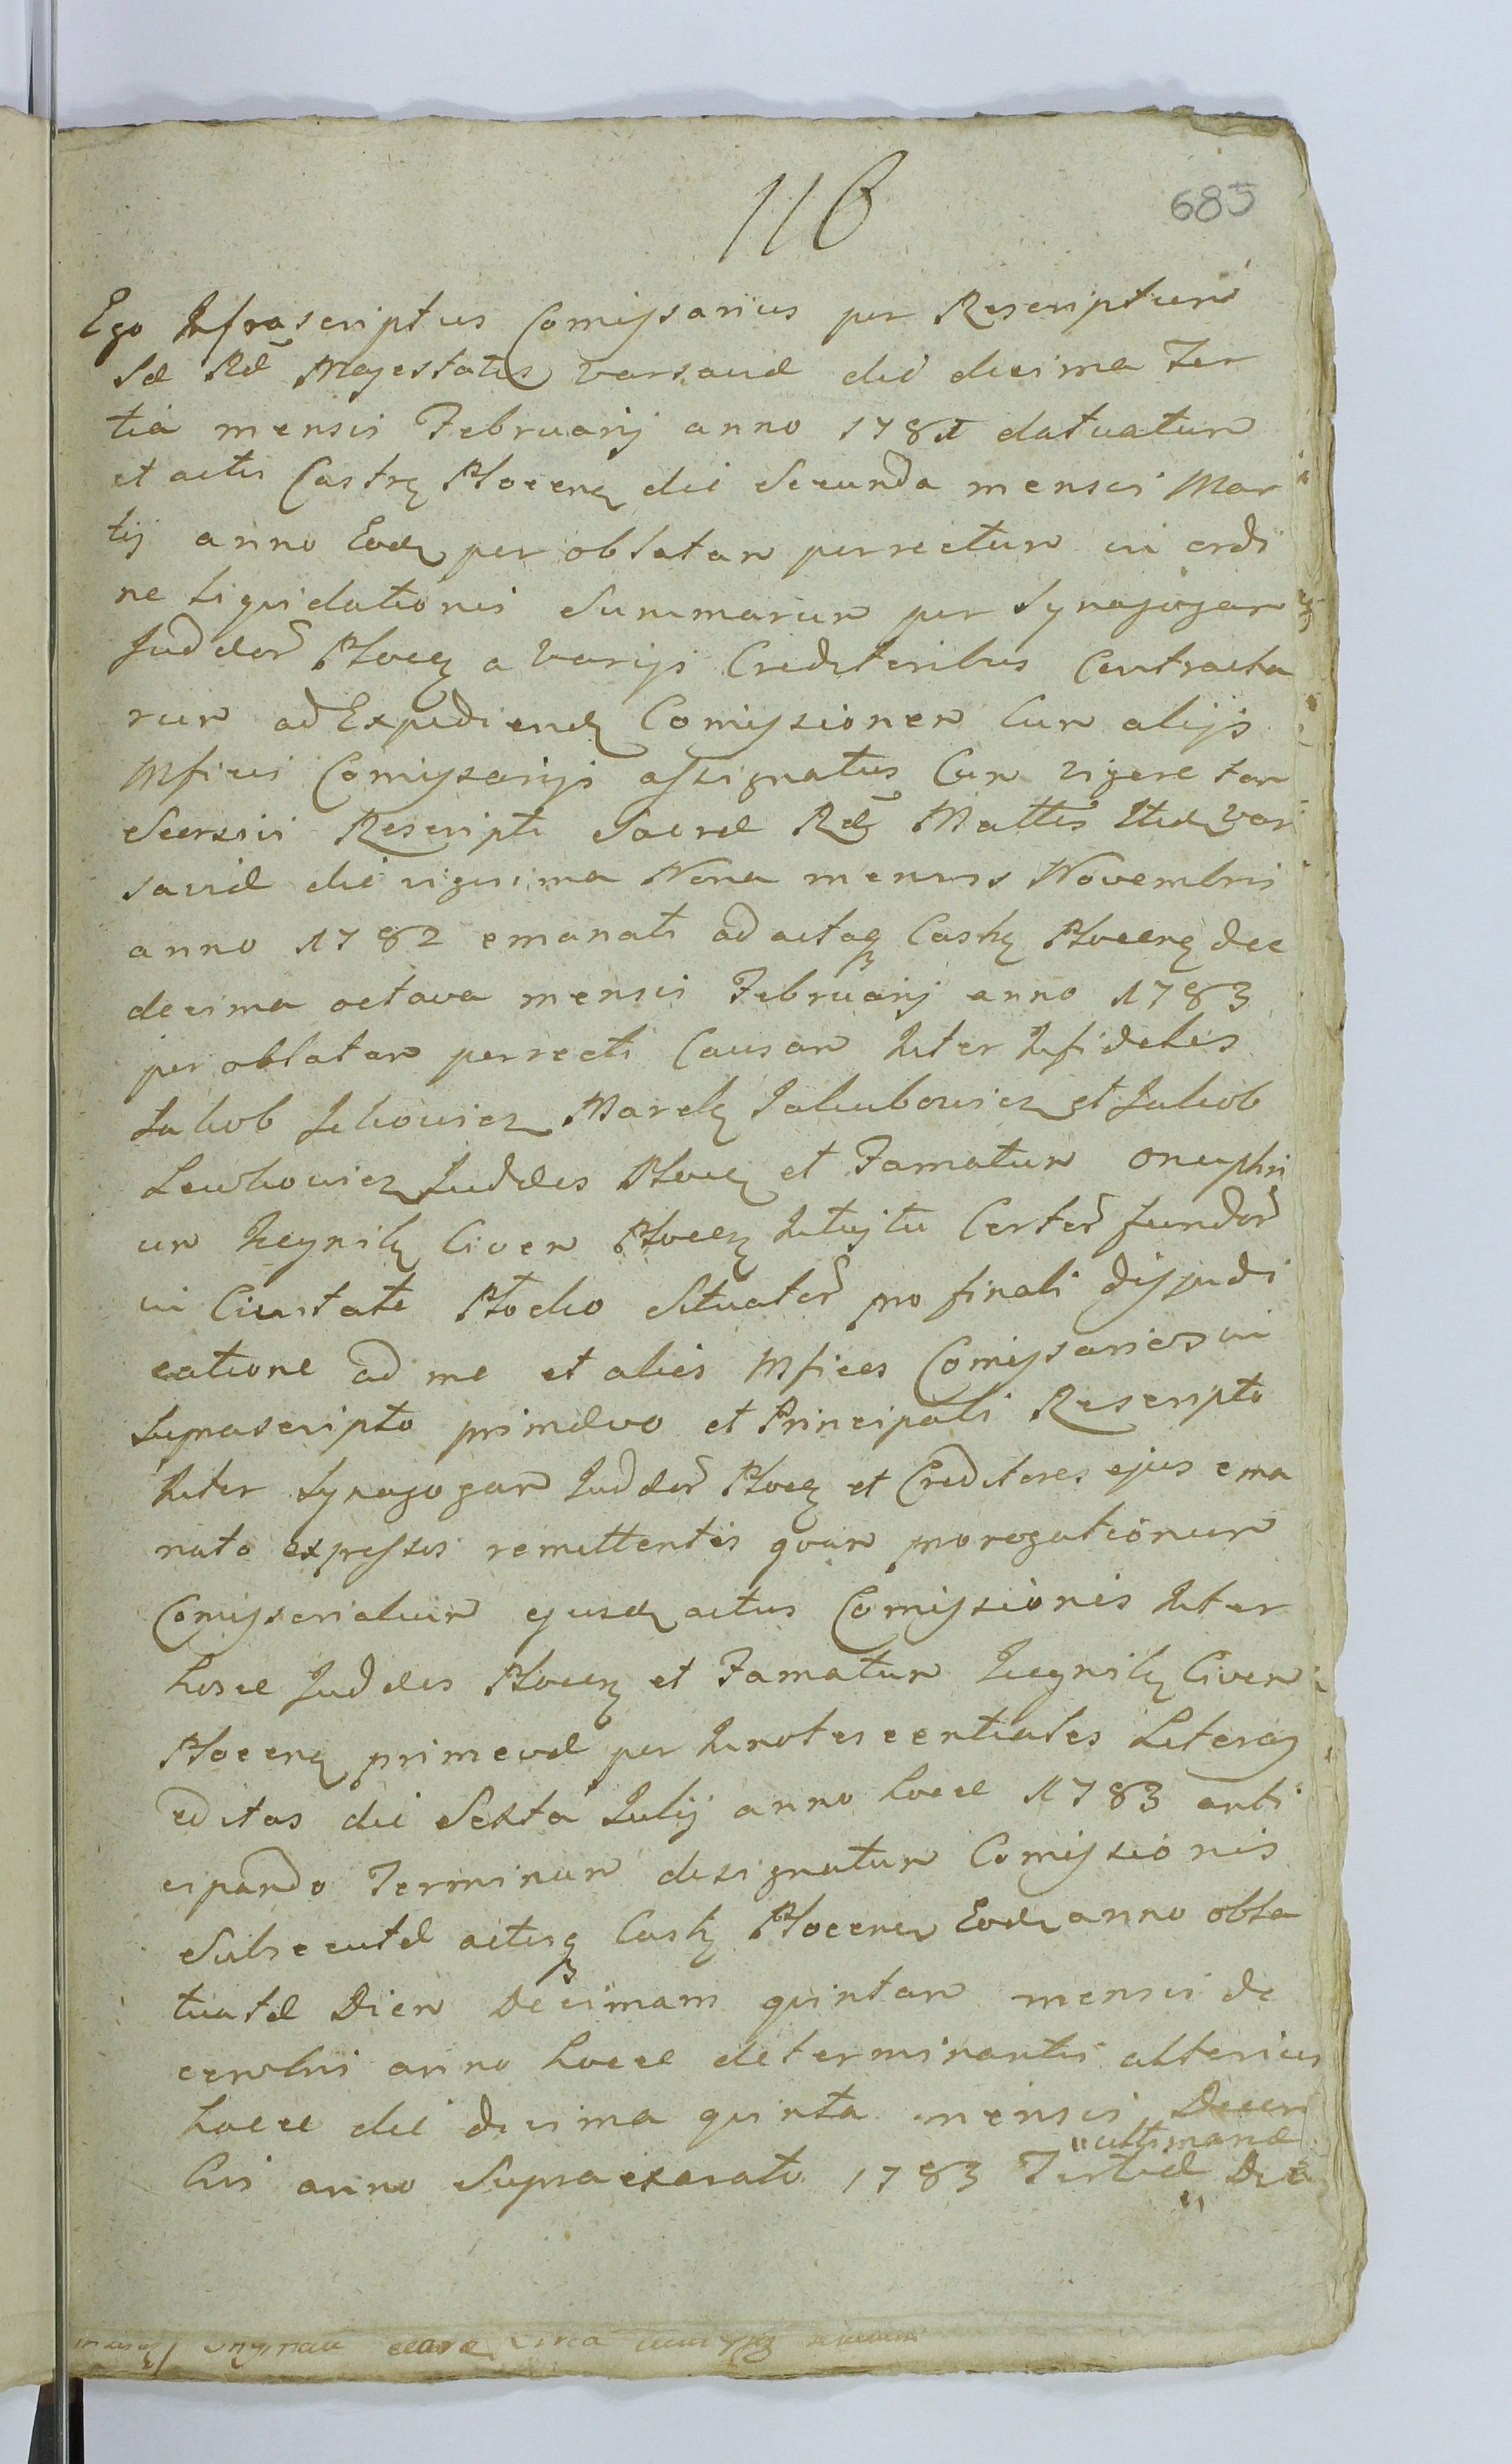 116
685
Ego Infrascriptus Comissarius per Rescriptum
Sæ Ræ Majestatis Varsaviæ die decima Ter
tia mensis Februarij anno 1781 datuatum
et actis Castrę Plocenę die Secunda mensis Mar
tij anno Eodę per oblatam perrectum in ordi
ne Liquidationis Summarum per Synagogam
Judæor Plocę a Varijs Creditoribus Contracta
rum ad Expediendę Comissionem Cum alijs
Mficis Comissarijs assignatus Cum vigore tam
Secussis Rescripti Sacræ Ræ Mattis Itidę Var
saviæ die vigesima Nona mensis Novembris
anno 1782 emanati ad actaq Castrę Plocenę die
decima octava mensis Februarij anno 1783
per oblatam perrecti Causam Inter Infideles
Jakob Marekę Jakubowicz et Jakob
Lewkowicz Judæos Plocę et Famatum Onuphri
um Civem Plocenę Intuitu Certor fundor
in Civitate Plocko Situator pro finali dijudi
catione ad me et alios Mficos Comissarios in
Supra scripto primævo et Principali Rescripto
Inter Synagogam Judæor Plocę et Creditores ejus ema
nato expressos remittentis quam prorogationum
Comissarialium ejusdę actus Comissionis Inter
hosce Judæos Plocenę et Famatum Civem
Plocenę primevæ per Innotescentiales Literas
editas die Sexta Julij anno hocce 1783 anti
cipando Terminum designatum Comissionis
Subsecutæ actisq Castrę Plocenę Eodę anno obla
tuatæ Diem Decimam quintam mensis de
cembris anno hocce determinantis alterius
hocce die decima quinta mensis Decem
bris anno Supra exarato 1783 Tertiæ "ultimariæ" Dict